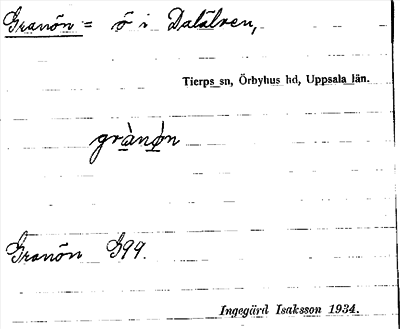 Granön = ö i Dalälven,
Tierps sn, Örbyhus hd, Uppsala län.
grànøn
Granön G99.
Ingegärd Isaksson 1934.